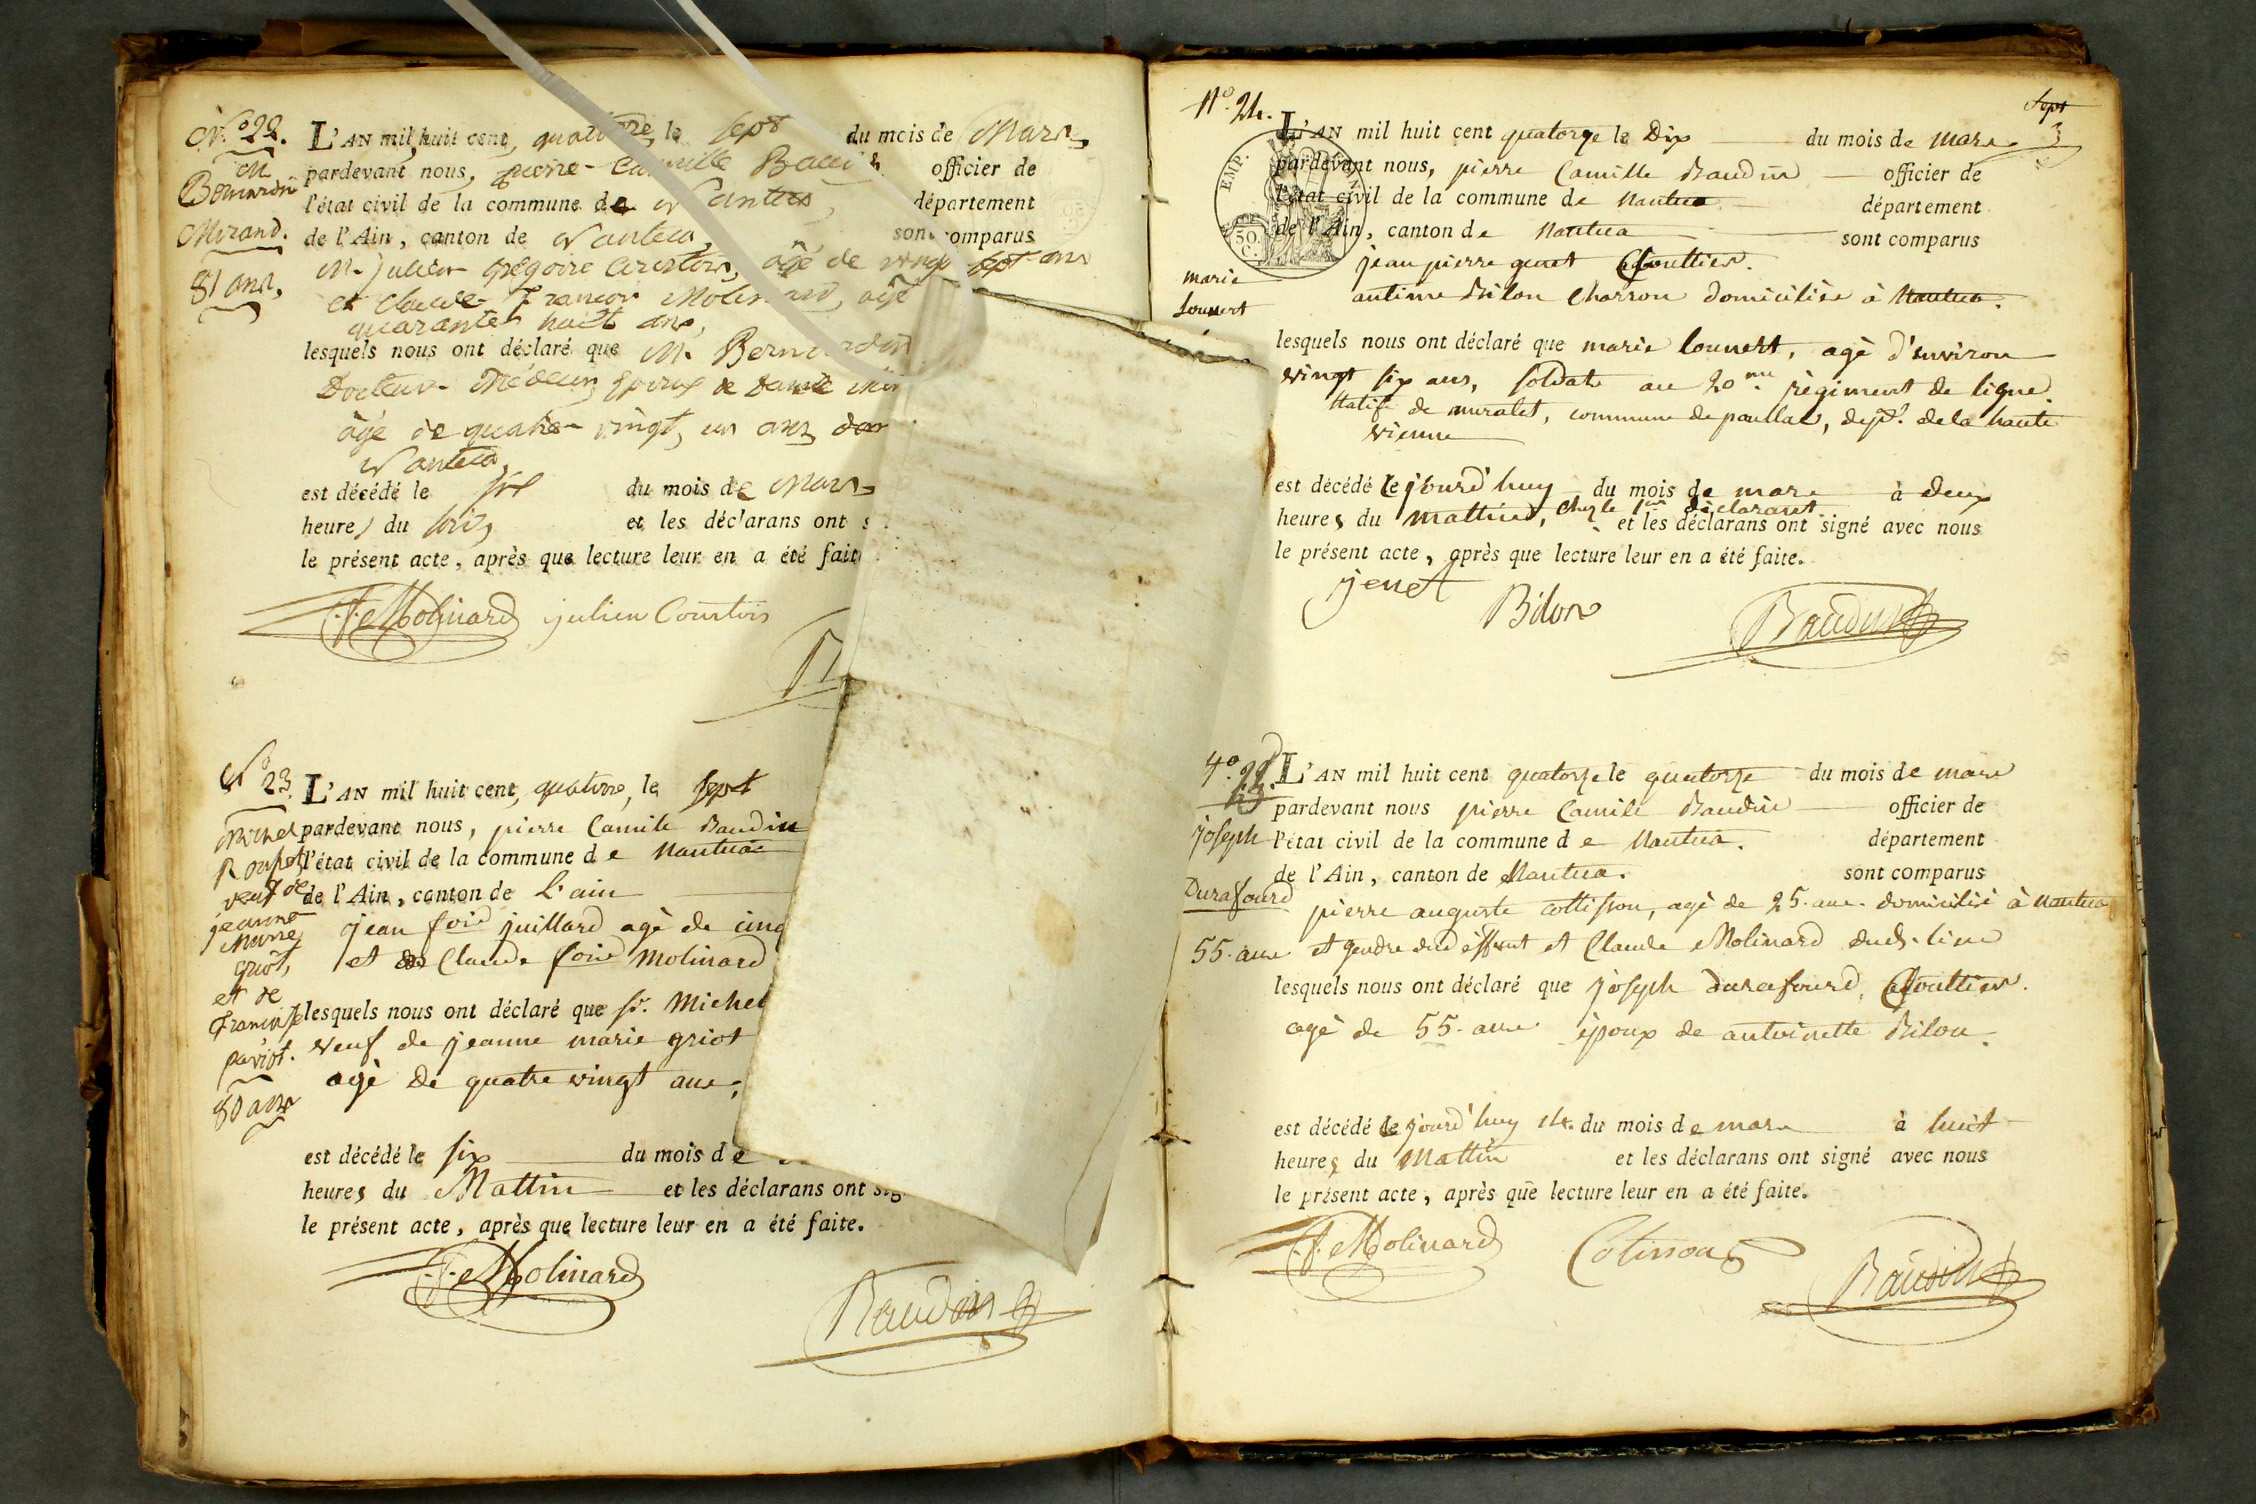 N.º 22.
M
Bernardin
Mirand.
81 ans.
L'AN mil huit cent quatorze, le sept du mois de Mars
pardevant nous, pierre Camille officier de
l'état civil de la commune de Nantua, département
de l'Ain, canton de Nantua, sont comparus
M. julien grégoire âgé de vingt sept ans
et claude françois Molinard, âgé
quarante huit ans,
lesquels nous ont déclaré que M. Bernardin
Docteur Médecin, Epoux de Dame
âgé de quatre vingt, un ans
Nantua
est décédé le six du mois de Mars
heures du soir, et les déclarans ont
le présent acte, après que lecture leur en a été faite
F. Molinard julien Courtois
N.º 23.
Michel
veuf de
jeanne
Marie
griot,
et de
pariot.
80 ans
L'AN mil huit cent quatorze, le sept
pardevant nous, pierre Camile Baudin
l'état civil de la commune de Nantua
de l'Ain, canton de L'ain
jean fois juillard agè de cinq
et Claude fois Molinard
lesquels nous ont déclaré que sr. Michel
veuf de jeanne marie griot
agè de quatre vingt ans,
est décédé le six du mois de
heures du Mattin et les déclarans ont sig
le présent acte, après que lecture leur en a été faite.
F. Molinard
Baudin
Nº. 24.
Sept
3
EMP.
50.
C.
marie
Lounert
L'AN mil huit cent quatorze le Dix du mois de mars
pardevant nous, pierre Camille Baudin officier de
l'état civil de la commune de Nantua département
de l'Ain, canton de Nantua sont comparus
jean pierre genet
Bilon Charron domicilié à Nantua.
lesquels nous ont déclaré que marie lounert, agè d'environ
vingt six ans, soldat au 20me régiment de ligne.
Natif de muralet, commune de paullac, dept. de la haute
vienne
est décédé le jourd'huy du mois de mars à deux
heures du mattin, chez le 1er déclarant et les déclarans ont signé avec nous
le présent acte, après que lecture leur en a été faite.
jenet
Bilon
Baudin
joseph
Durafourd
55. ans
L'AN mil huit cent quatorze le quatorze du mois de mars
pardevant nous pierre Camile Baudin officier de
l'état civil de la commune de Nantua. département
de l'Ain, canton de Nantua. sont comparus
pierre auguste collisson, agè de 25. ans. domicilié à Nantua
et gendre dud éffunt et Claude Molinard dud. lieu
lesquels nous ont déclaré que joseph durafourd,
agè de 55. ans époux de antoinette Bilon.
est décédé le jourd'huy 14. du mois de mars à huit
heures du Mattin et les déclarans ont signé avec nous
le présent acte, après que lecture leur en a été faite.
F. Molinard Colisson
Baudin